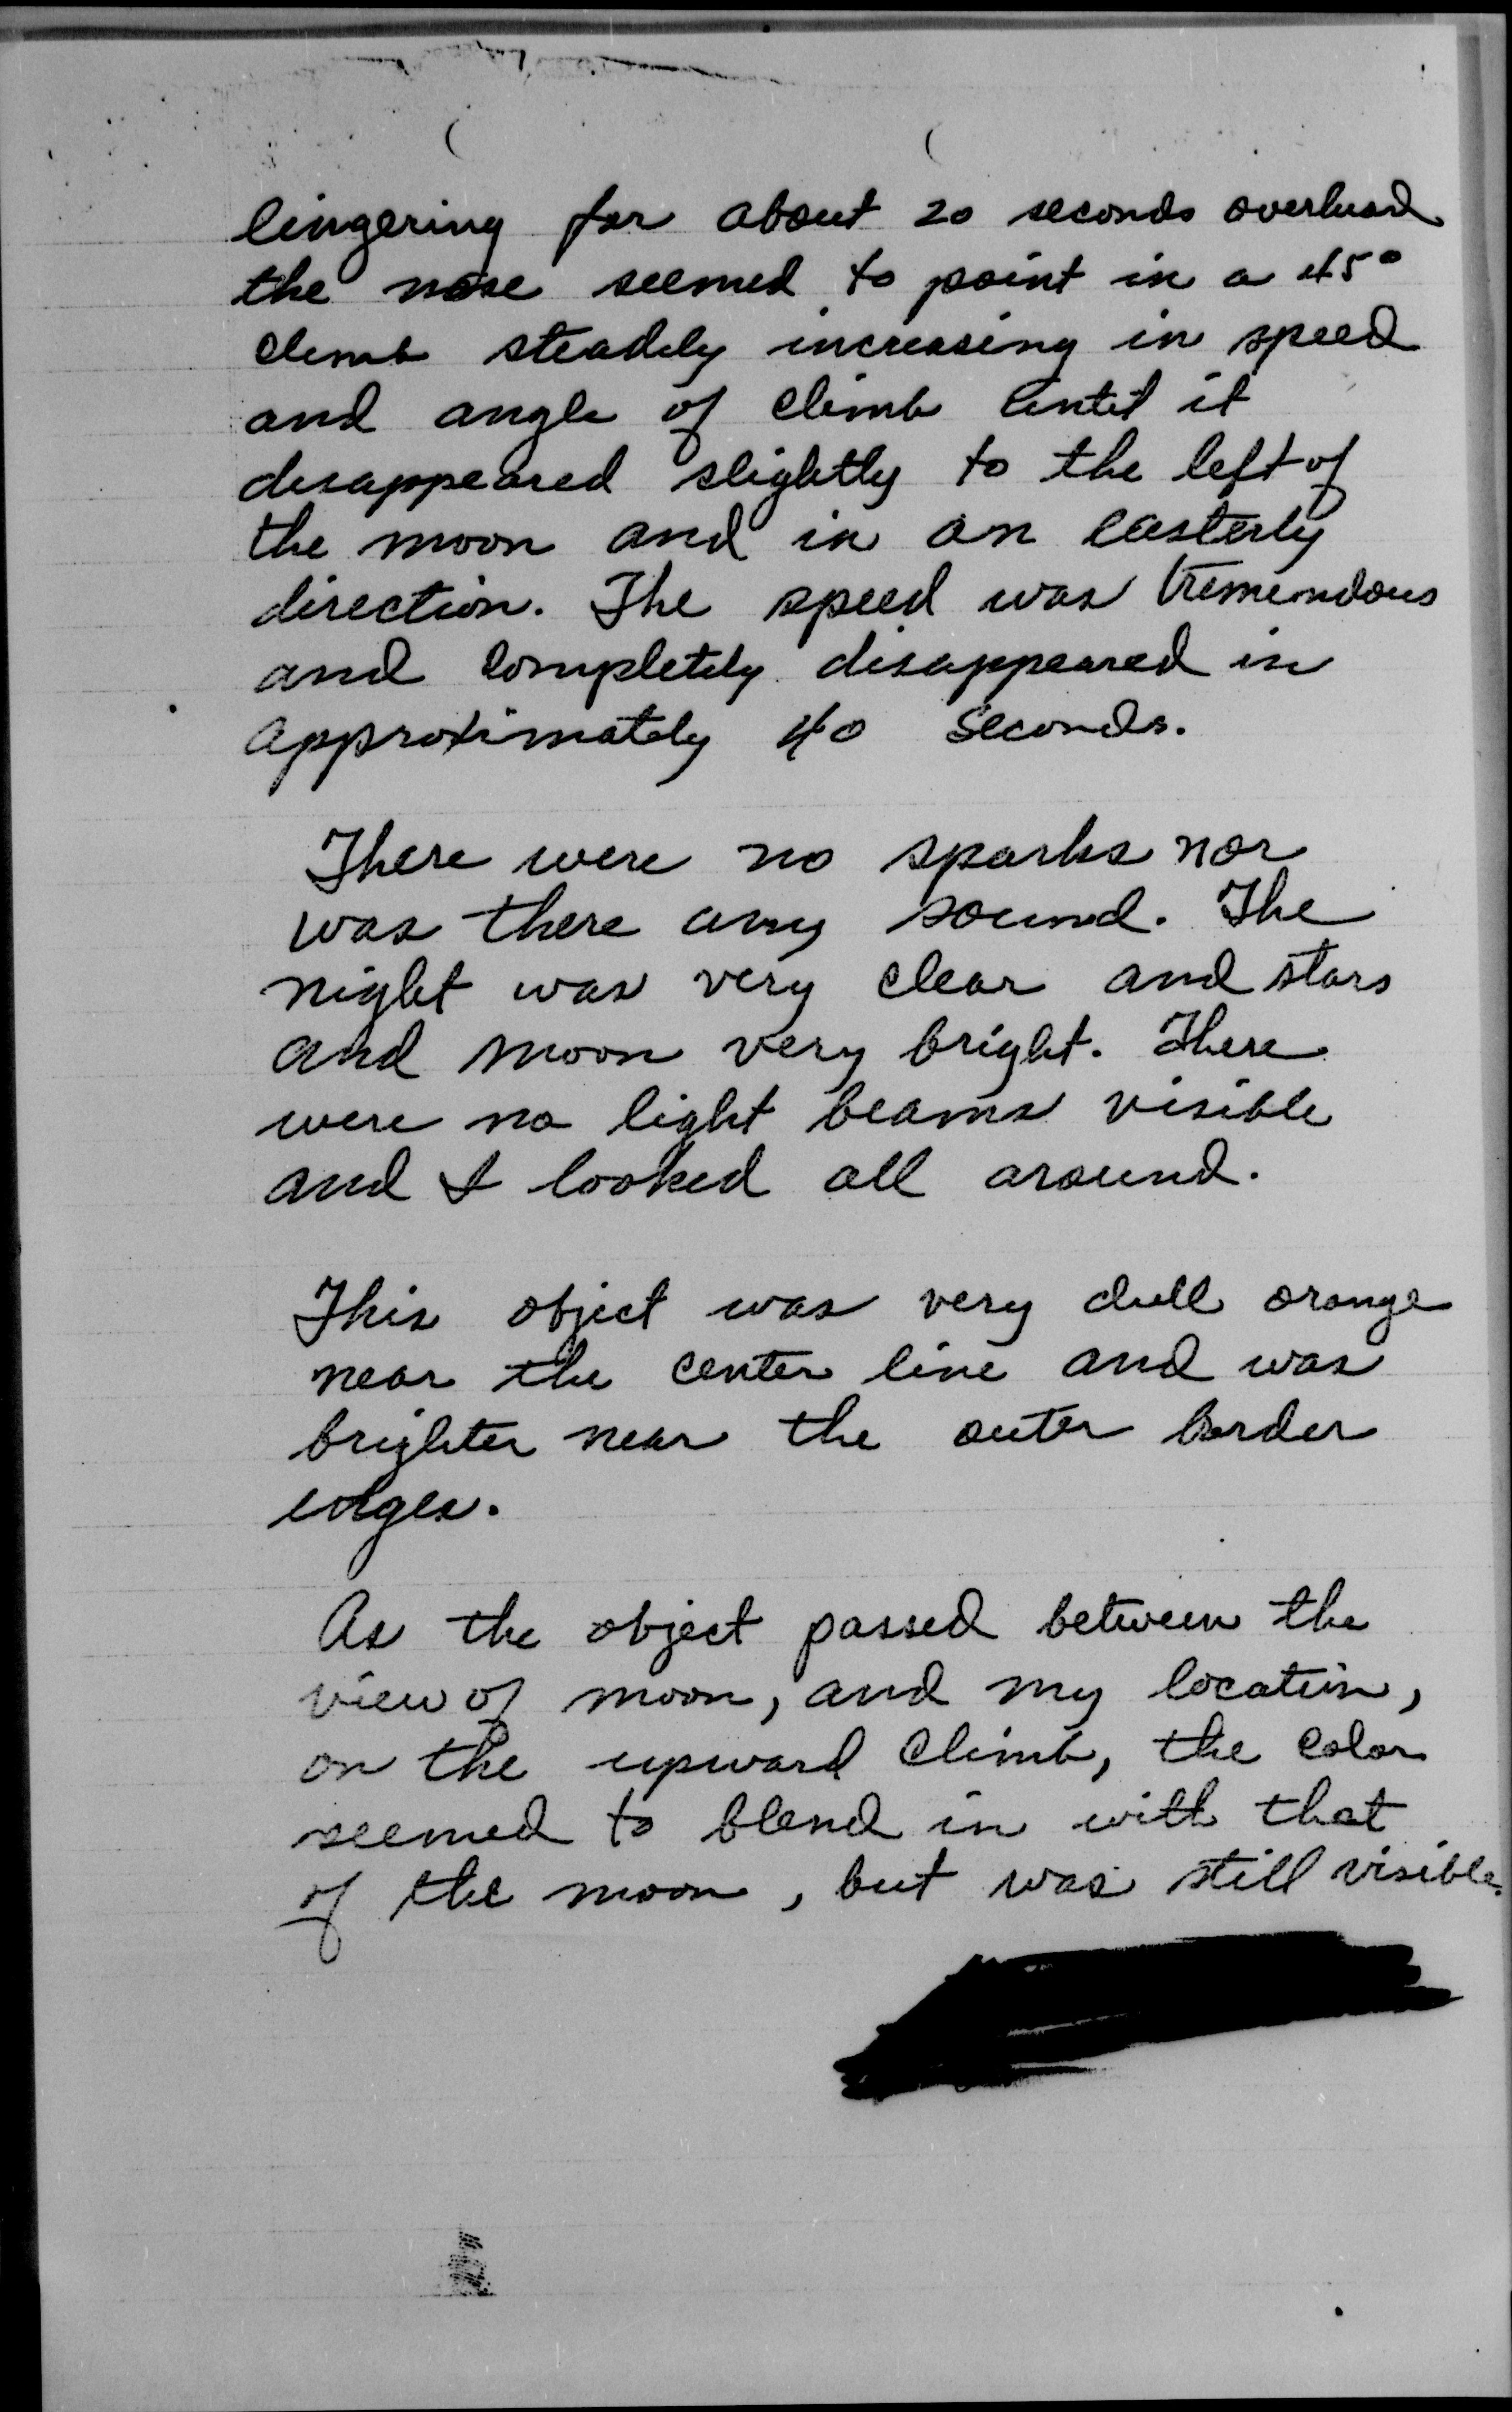 lingering for about 20 seconds overhead
the nose seemed to point in a 45°
climb steadily increasing in speed
and angle of climb until it
disappeared slightly to the left of
the moon and in an easterly
direction. The speed was tremendous
and completely disappeared in
approximately 40 seconds.
There were no sparks nor
was there any sound. The
night was very clear and stars
and moon very bright. There
were no light beams visible
and I looked all around.
This object was very dull orange
near the center line and was
brighter near the outer border
edges.
As the object passed between the
view of moon, and my location,
on the upward climb, the color
seemed to blend in with that
of the moon, but was still visible.